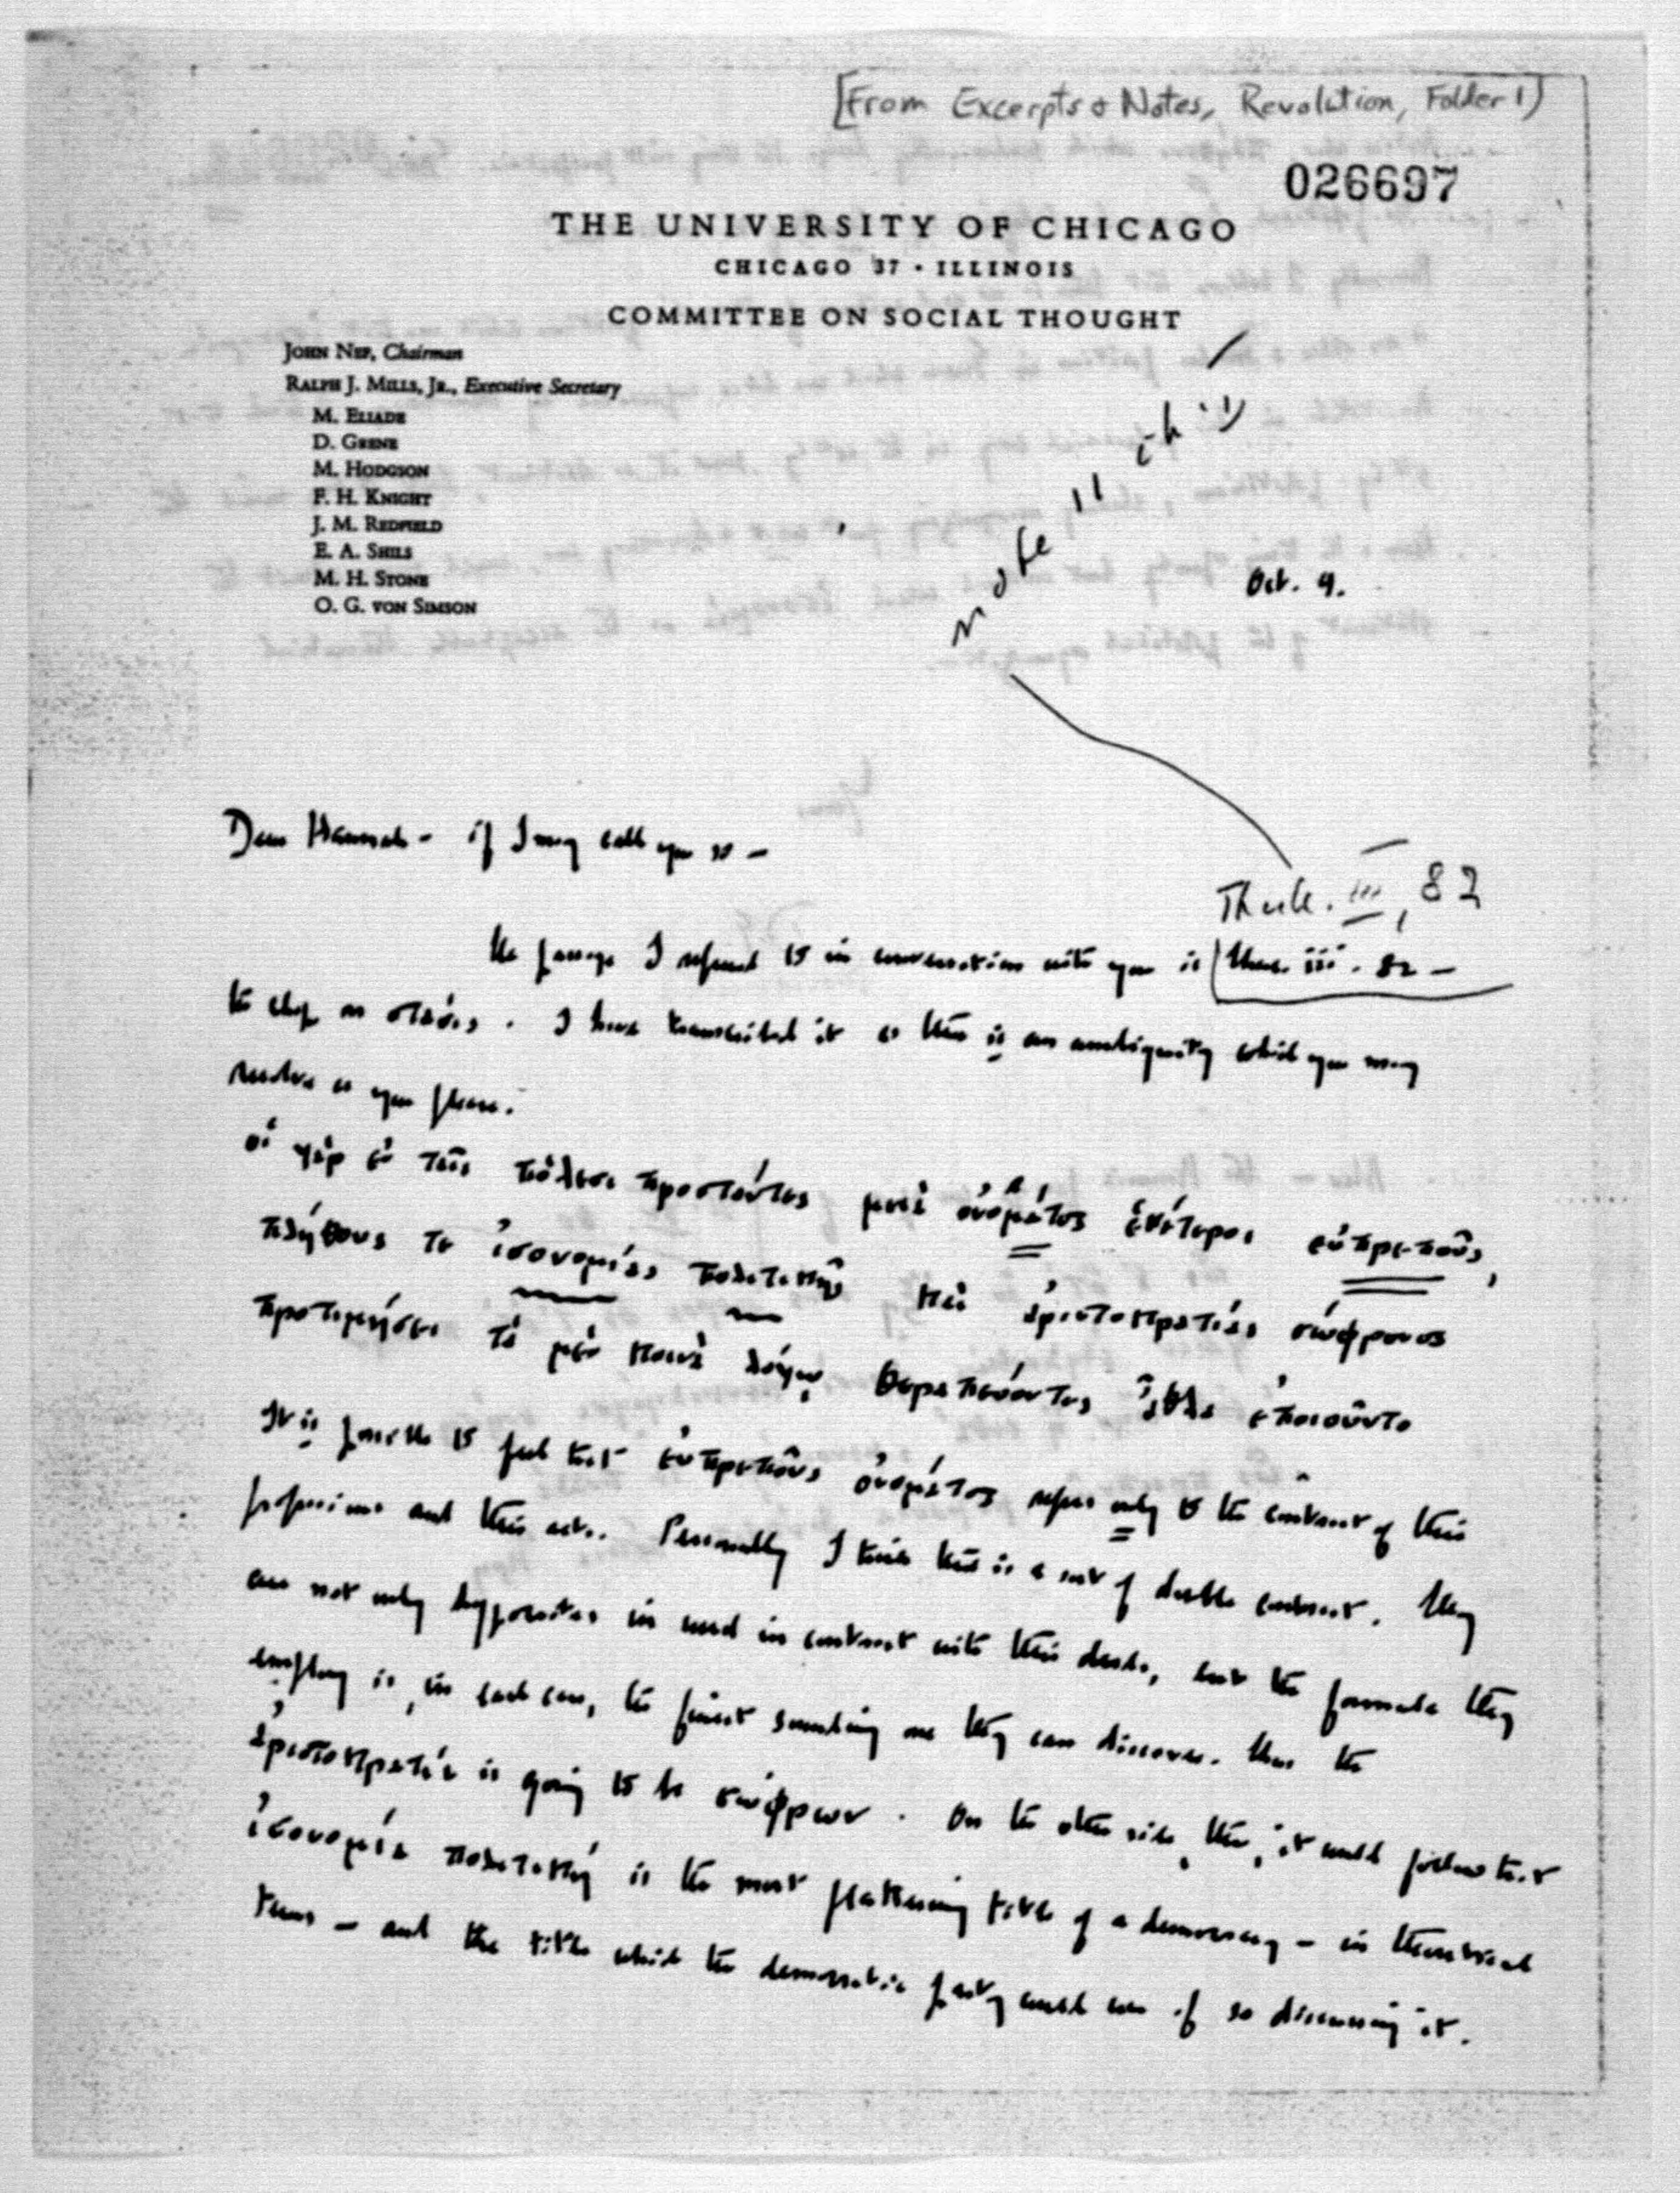 [From Excerpts & Notes, Revolution, Folder 1]
026697
THE UNIVERSITY OF CHICAGO
CHICAGO 37 · ILLINOIS
COMMITTEE ON SOCIAL THOUGHT
JOHN NEF, Chairman
RALPH J. MILLS, JR., Executive Secretary
M. ELIADE
D. GRENE
M. HODGSON
F. H. KNIGHT
J. M. REDFIELD
E. A. SHILS
M. H. STONE
O. G. VON SIMSON
note 11 ch. 1)
Oct. 9.
Dear Hannah – if I may call you so –
Thuk. III, 82
the passage I referred to in conversation with you is thuc. iii. 82 –
the chap on στάσις. I have transcribed it as there is an ambiguity which you may
resolve as you please.
οἱ γὰρ ἐν ταῖς πόλεσι προστάντες μετὰ ὀνόματος ἑκάτεροι εὐπρεποῦς,
πλήθους τε ἰσονομίας πολιτικῆς καὶ ἀριστοκρατίας σώφρονος
προτιμήσει τὰ μὲν κοινὰ λόγῳ θεραπεύοντες ἆθλα ἐποιοῦντο
It is possible to feel that εὐπρεποῦς ὀνόματος refers only to the contrast of their
professions and their acts. Personally I think this is a sort of double contrast. They
are not only hypocrites in word in contrast with their deeds, but the formula they
employ is, in each case, the finest sounding one they can discover. thus the
ἀριστοκρατία is going to be σώφρων. On the other side, then, it would follow that
ἰσονομία πολιτική is the most flattering title of a democracy – in theoretical
terms – and the title which the democratic party would use if so discussing it.